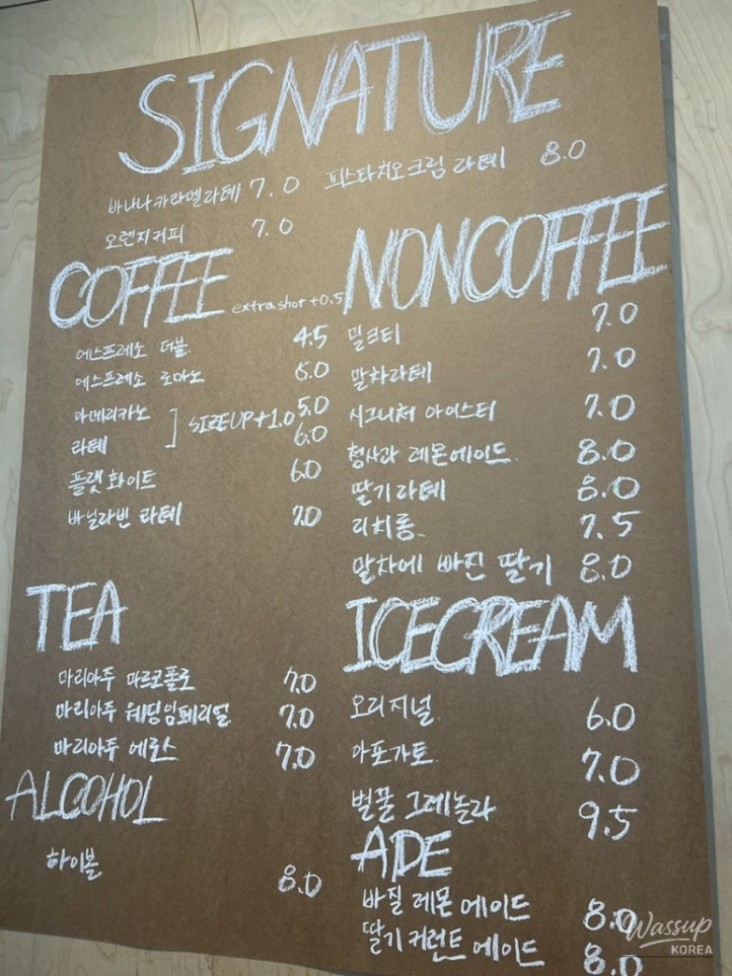 SIGNATURE
바나나카라멜라떼 7.0
피스타치오크림 라떼 8.0
오렌지커피 7.0
COFFEE extra shot +0.5
에스프레소 더블 4.5
에스프레소 로마노 5.0
아메리카노 5.0
라떼 6.0
SIZEUP+1.0
플랫화이트 6.0
바닐라빈 라떼 7.0
NONCOFFEE
밀크티 7.0
말차라떼 7.0
시그니처 아이스티 7.0
청사과 레몬에이드 8.0
딸기라떼 8.0
리치롱 7.5
말차에 빠진 딸기 8.0
TEA
마리아주 마르코폴로 7.0
마리아주 웨딩임페리얼 7.0
마리아주 에로스 7.0
ALCOHOL
하이볼 8.0
ICECREAM
오리지널 6.0
아포가토 7.0
벌꿀 그레놀라 9.5
ADE
바질 레몬 에이드 8.0
딸기 커런트 에이드 8.0
Wassup
KOREA